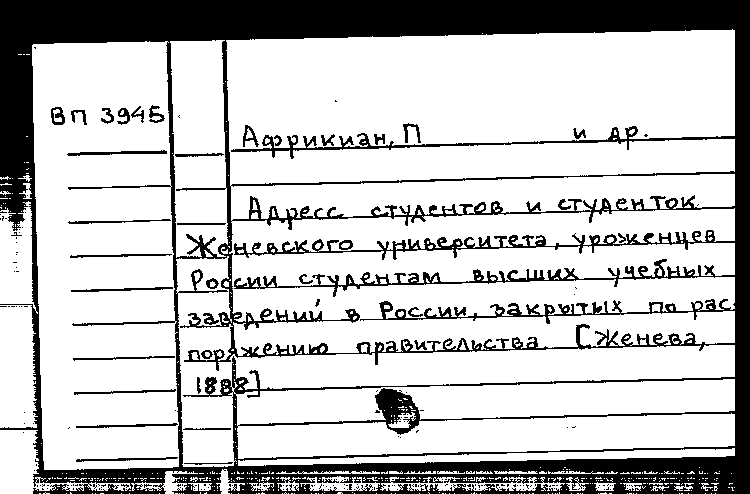 ВП 3945
Африкиан, П и др.
Адресс студентов и студенток
Женевского университета, уроженцев
России студентам высших учебных
заведений в России, закрытых по рас-
поряжению правительства. [Женева,
1888]